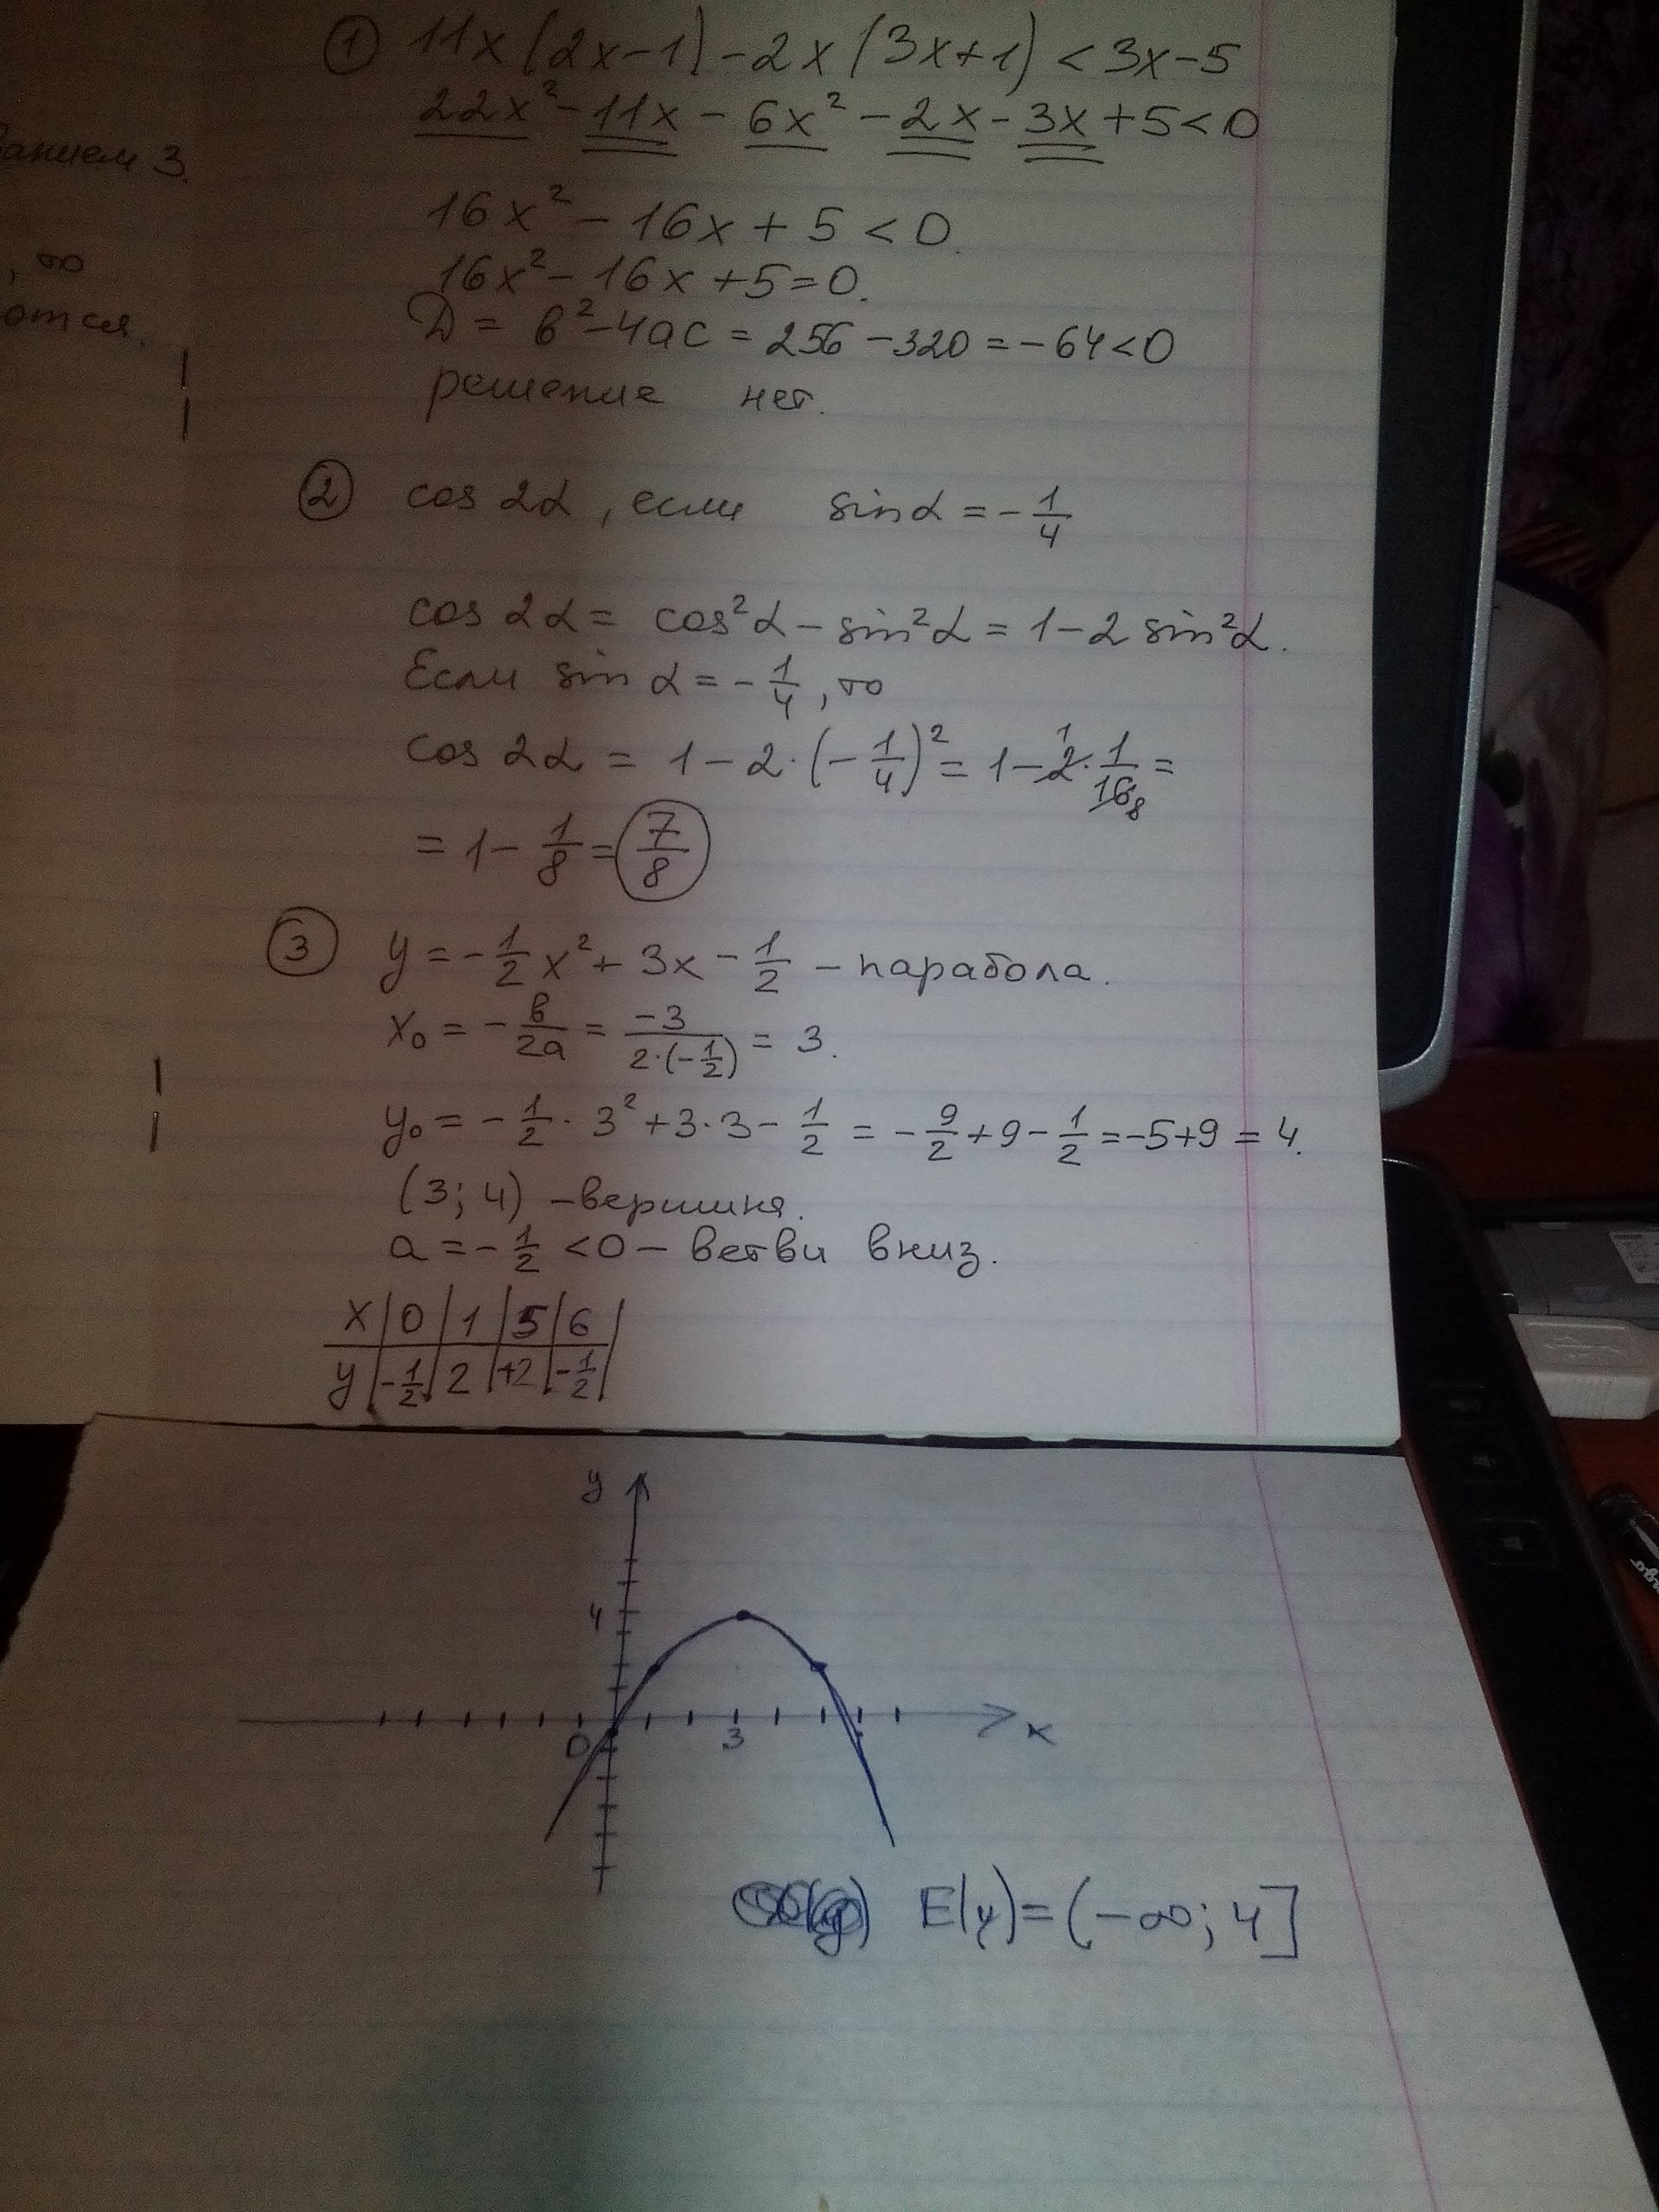 ванием 3.
, то
ются.
① 11x(2x-1)-2x(3x+1)<3x-5
22x²-11x-6x²-2x-3x+5<0
16x²-16x+5<0.
16x²-16x+5=0.
D = b²-4ac = 256-320=-64<0
решение нет.
② cos 2α, если sinα=-1/4
cos 2α = cos²α-sin²α=1-2 sin²α.
Если sin α=-1/4, то
cos 2α = 1-2·(-1/4)² = 1-2·1/16 = 1 8
= 1-1/8=7/8
③ y=-1/2x²+3x-1/2 - парабола.
x₀ = -b/2a = -3/2·(-1/2) = 3.
y₀ = -1/2·3²+3·3-1/2 = -9/2+9-1/2=-5+9=4.
(3; 4) -вершина.
a=-1/2<0- ветви вниз.
x|0|1|5|6|
y|-1/2|2|+2|-1/2|
y
4
0 3 x
E(y)=(-∞; 4]